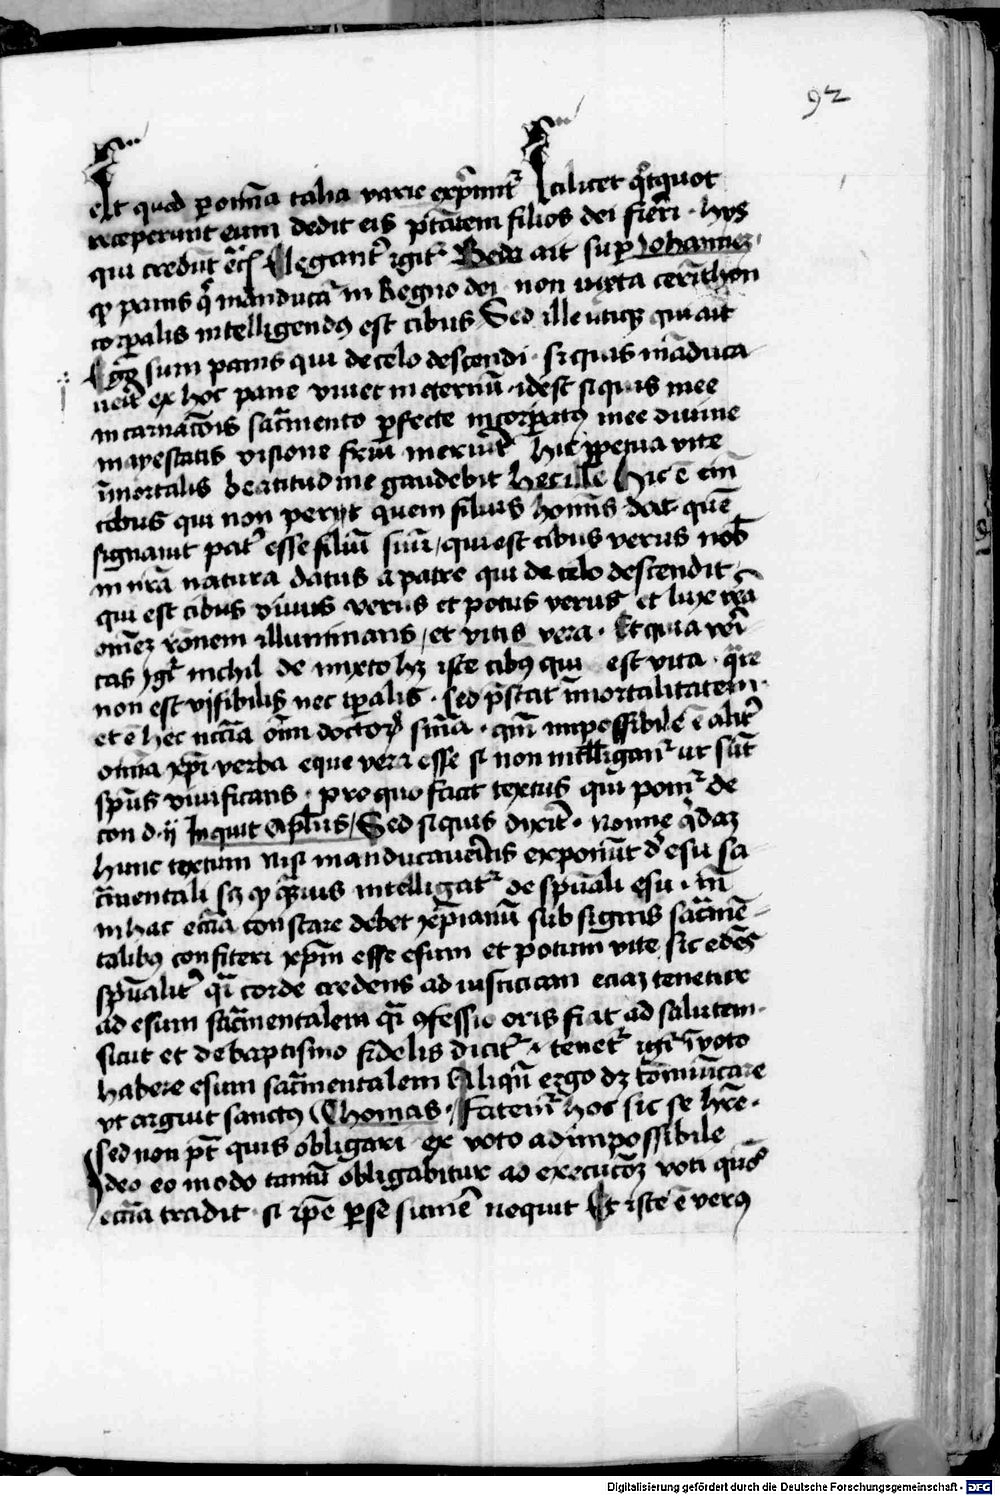 92
est quod per om̄ia talia varie exp̄mit᷑ Scilicet qͦtquot
receperunt eum dedit eis ptātem filios dei fieri · hys
qui credūt Elegant᷑ igit᷑ Beda ait sup Iohannez
qp panis qͥ māducat᷑ in Regno dei non iuxta cerīthon
corꝑalis intelligendꝰ est cibus Sed ille utiqꝫ qui ait
Ego sum panis qui de celo descendi · si quis māduca
uerit ex hoc pane viuet in eternū · id est si quis mee
incarnacōis sacͣmento ꝑfecte incorꝑatꝰ mee diuine
mayestatis visione frui meruit᷑ hic ꝑpetua vite
īmortalis beatitudine gaudebit hec ille Hic ē em̄
cibus qui non perijt quem filius homīs dat quē
signauit pat᷑ esse filiū suū / qui est cibus verus nob̄
in nr̄a natura datus a patre qui de celo descendit
qui est cibus viuus verus et potus verus et lux vēa
omēz rōnem illuminans / et vitis vera · Et quia veri
tas igͥ nichil de mixto hꝫ iste cibꝰ qui est vita · qͣre
non est visibilis nec tꝑalis · sed p̄stat īmortalitatem ·
et ē hec nr̄a oīm doctoꝝ sn̄ia · qm̄ impossibile ē alit᷑
om̄ia xp̄i verba eque vera esse si non intelligant᷑ ut sūt
sp̄us viuificans · pro quo facit textus qui ponit᷑ de
con d · ij Inquit Apl̄us / Sed si quis dixit᷑ · nonne qͥdaz
hunc textum nisi manducaueritis exponūt de esu sa
cͣmentali sꝫ qp quāuis intelligat᷑ de sp̄uali esu · tn̄
in hac etiā constare debet xp̄ianū sub signis sacͣmē
talibꝰ confiteri xp̄m esse esum et potum vite sic edēs
sp̄ualit᷑ qͥ corde credens ad iusticiam eciaz tenetur
ad esum sacͣmentalem qͣ ꝯfessio oris fiat ad salutem ·
sicut et de baptismo fidelis dicit᷑ · tenet᷑ igͥ ī voto
habere esum sacͣmentalem Aliqn̄ ergo dꝫ cōmūicare
vt arguit sanctꝰ Thomas · Fatem᷑ hoc sic se hr̄e ·
sed non pt̄ quis obligari ex voto ad impossibile
Ideo eo modo tantū obligabitur ad execucōꝫ voti
ecciā tradit · si ip̄e per se sumē nequit Et iste ē verꝰ
Digitalisierung gefördert durch die Deutsche Forschungsgemeinschaft - DFG